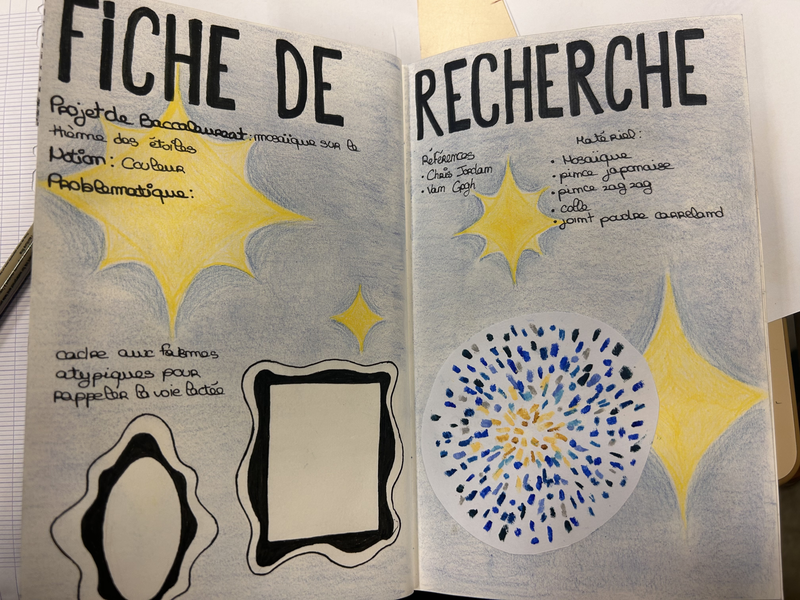 FICHE DE
Projet de Baccalauréat : mosaïque sur le
thème des étoiles
Notion : Couleur
Problématique :
cadre aux formes
atypiques pour
rappeler la voie lactée
RECHERCHE
Références
• Chris Jordan
• Van Gogh
Matériel :
• Mosaïque
• pince japonaise
• pince zag zag
• colle
• joint poudre carreland